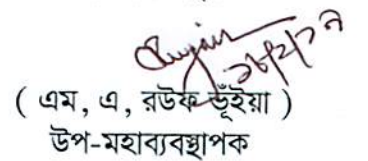 ( এম, এ, রউফ ভূঁইয়া )
উপ-মহাব্যবস্থাপক